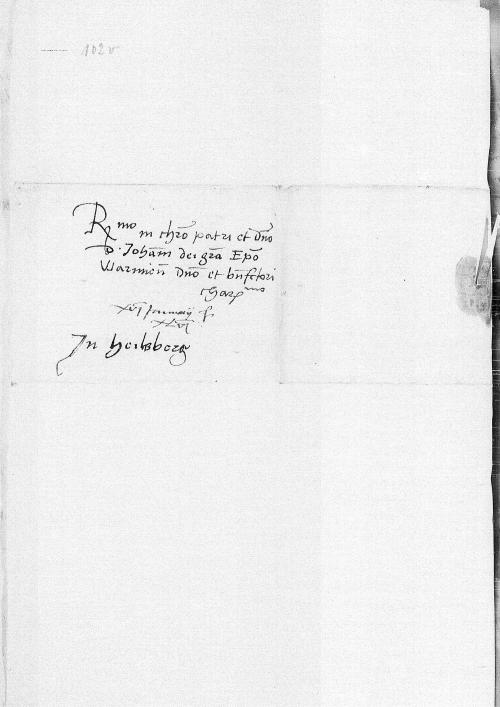 102v
R^mo in chr̄o patri et dn̄o
D. Joham̄ dei gr̄a Ep̄o
Warmien̄ Dn̄o et bn̄fctori
char^mo
xvj Januarij
xlvj
In heilsberg